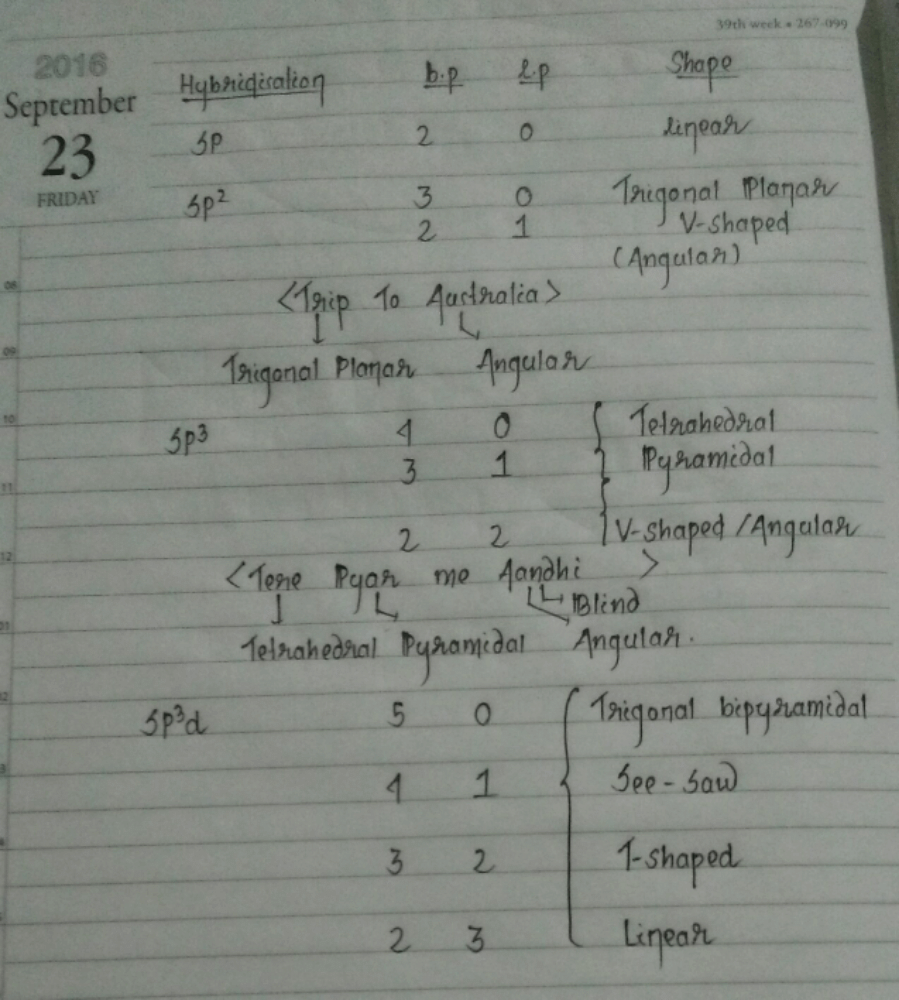 39th week • 267-099
2016
September
23
FRIDAY
Hybridisation b.p l.p Shape
sp 2 0 linear
sp² 3 0 Trigonal Planar
2 1 V-shaped
(Angular)
<Trip To Australia>
Trigonal Planar Angular
sp³ 4 0 Tetrahedral
3 1 Pyramidal
2 2 V-shaped / Angular
<Tere Pyar me Aandhi >
Blind
Tetrahedral Pyramidal Angular.
sp³d 5 0 Trigonal bipyramidal
4 1 See-Saw
3 2 T-shaped
2 3 Linear
08
09
10
11
12
01
02
3